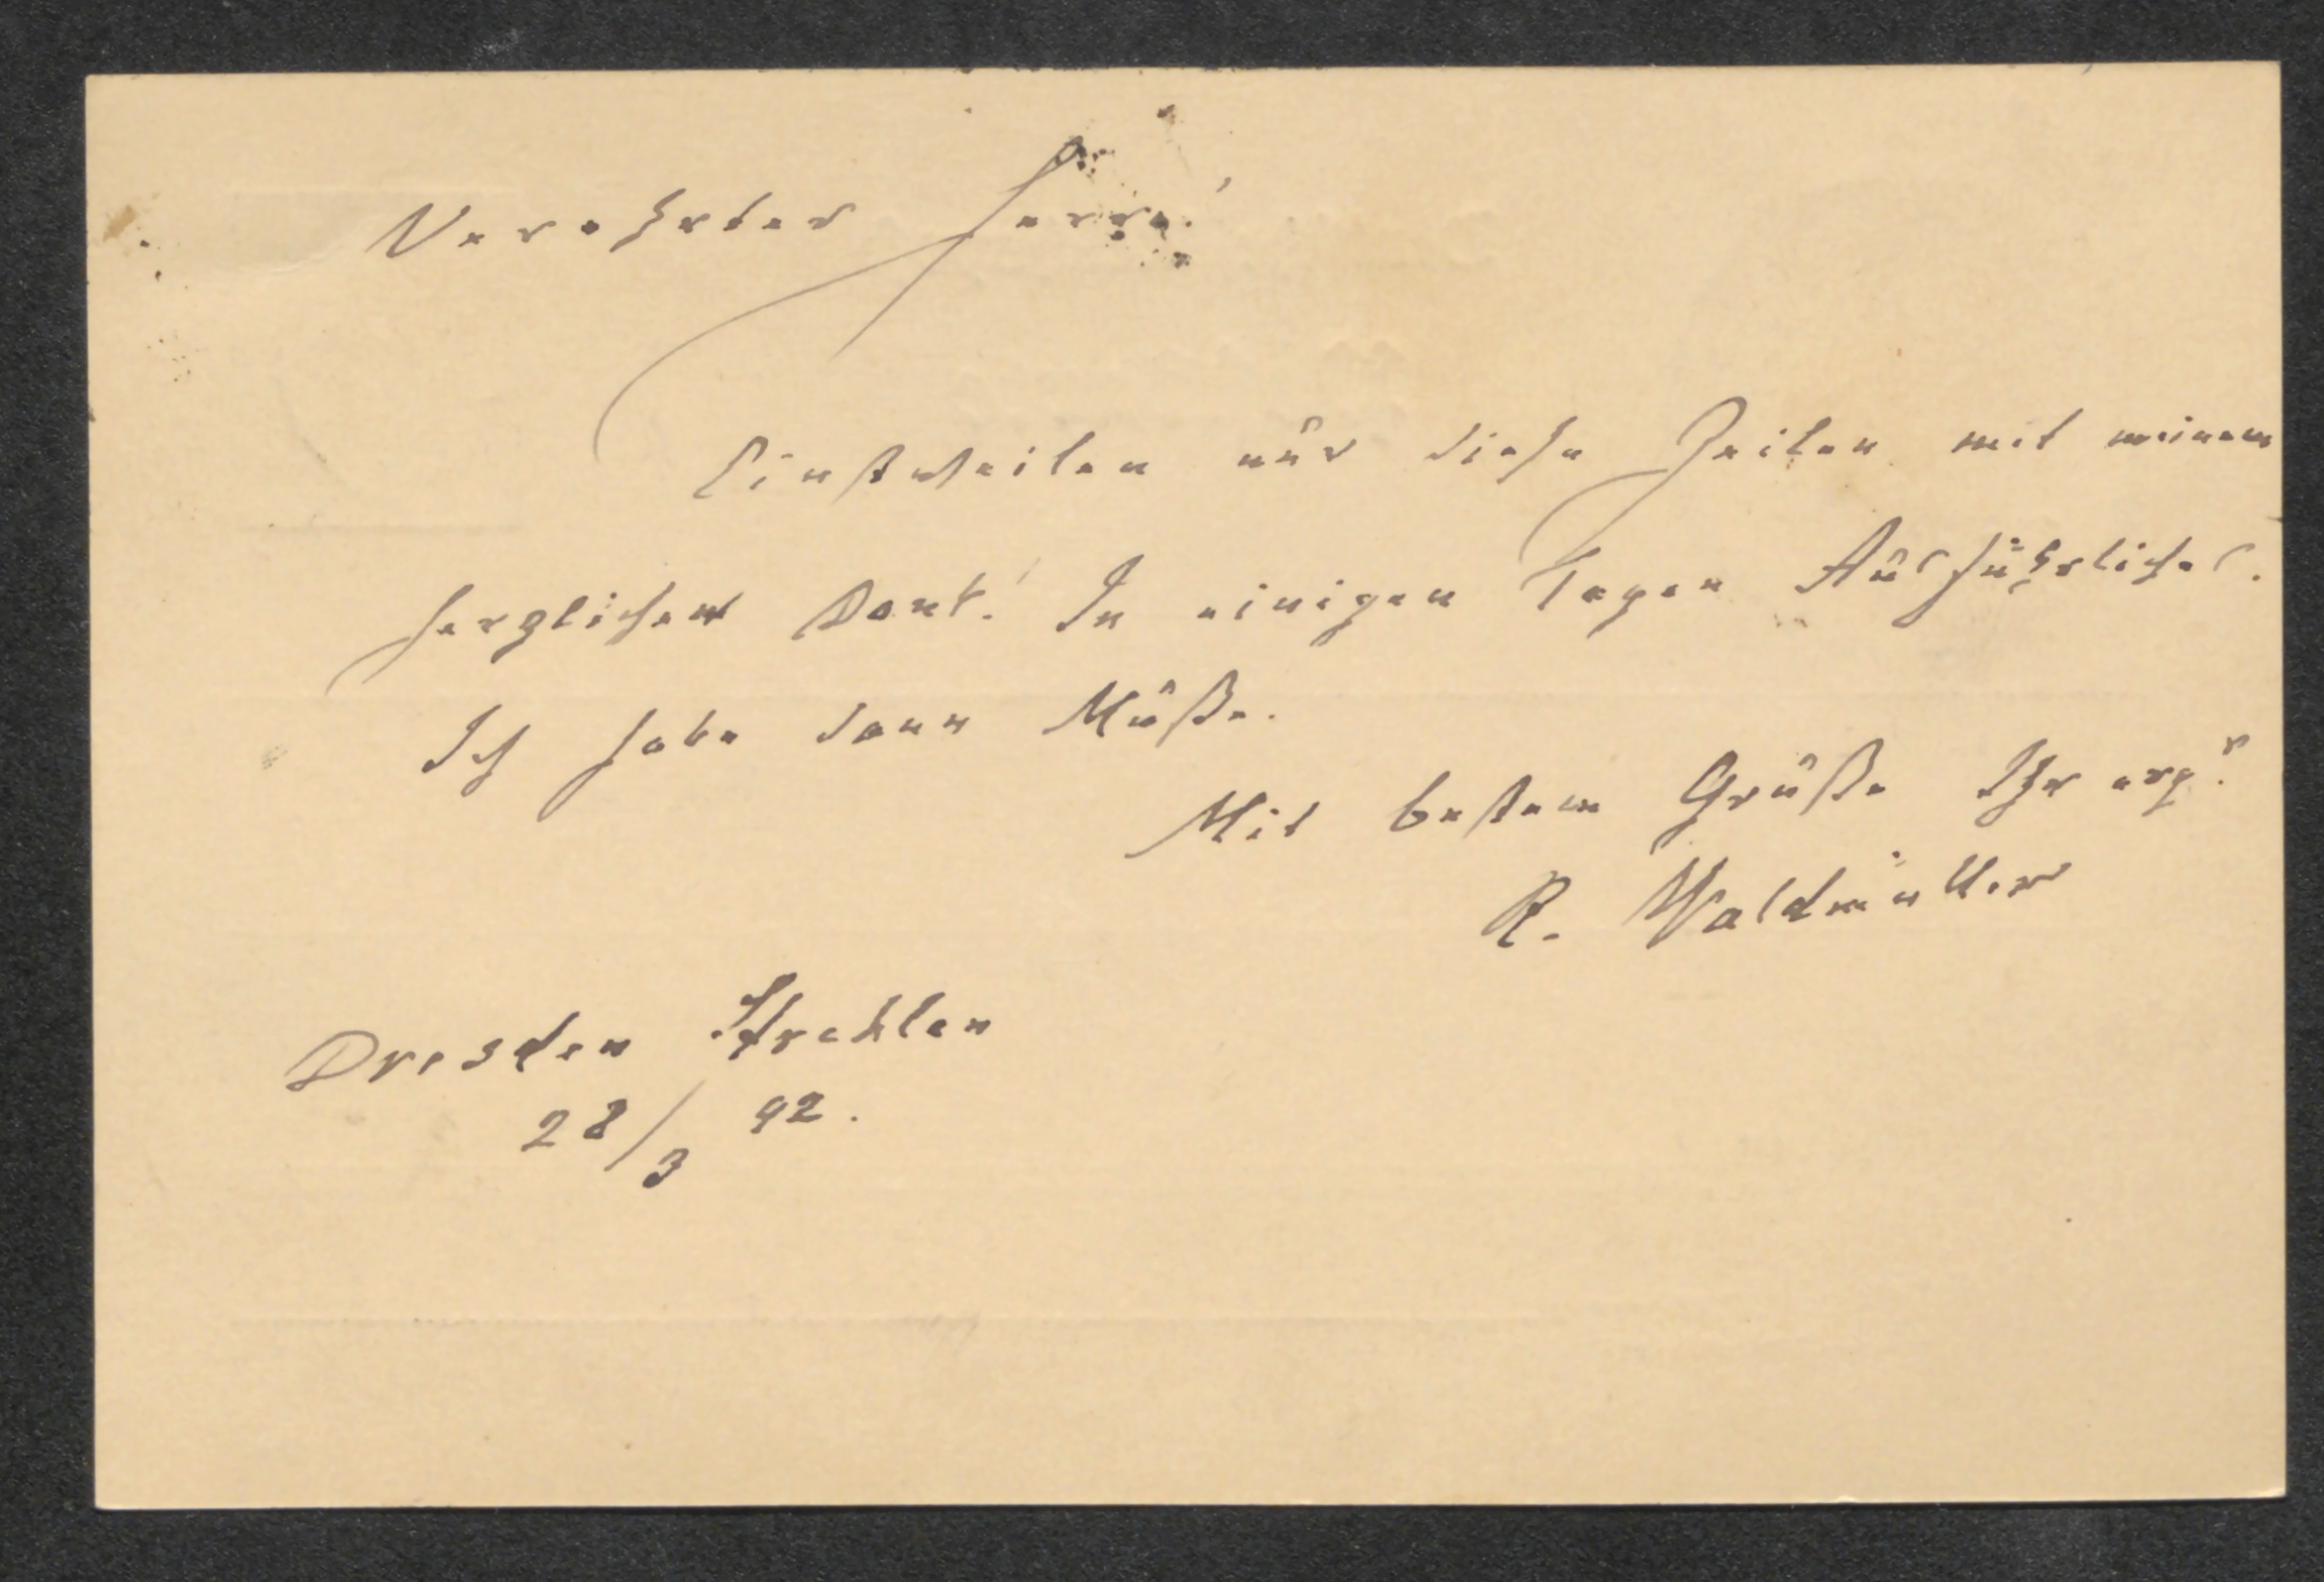 Verehrter Herr!
Einstweilen nur diese Zeilen mit meinem
herzlichen Dank! In einigen Tagen Ausführliches.
Ich habe dann Muße.
Mit bestem Gruße Ihr erg.r
R. Waldmüller
Dresden Strehlen
28/3 92.